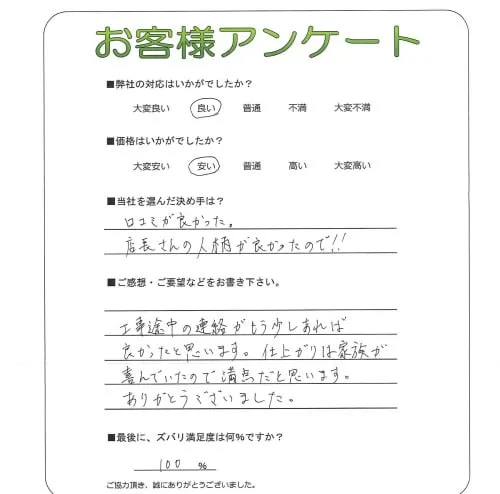 お客様アンケート
■弊社の対応はいかがでしたか？
大変良い 良い 普通 不満 大変不満
■価格はいかがでしたか？
大変安い 安い 普通 高い 大変高い
■当社を選んだ決め手は？
口コミが良かった。
店長さんの人柄が良かったので!!
■ご感想・ご要望などをお書き下さい。
工事途中の連絡がもう少しあれば
良かったと思います。仕上がりは家族が
喜んでいたので満点だと思います。
ありがとうございました。
■最後に、ズバリ満足度は何％ですか？
100 ％
ご協力頂き、誠にありがとうございました。